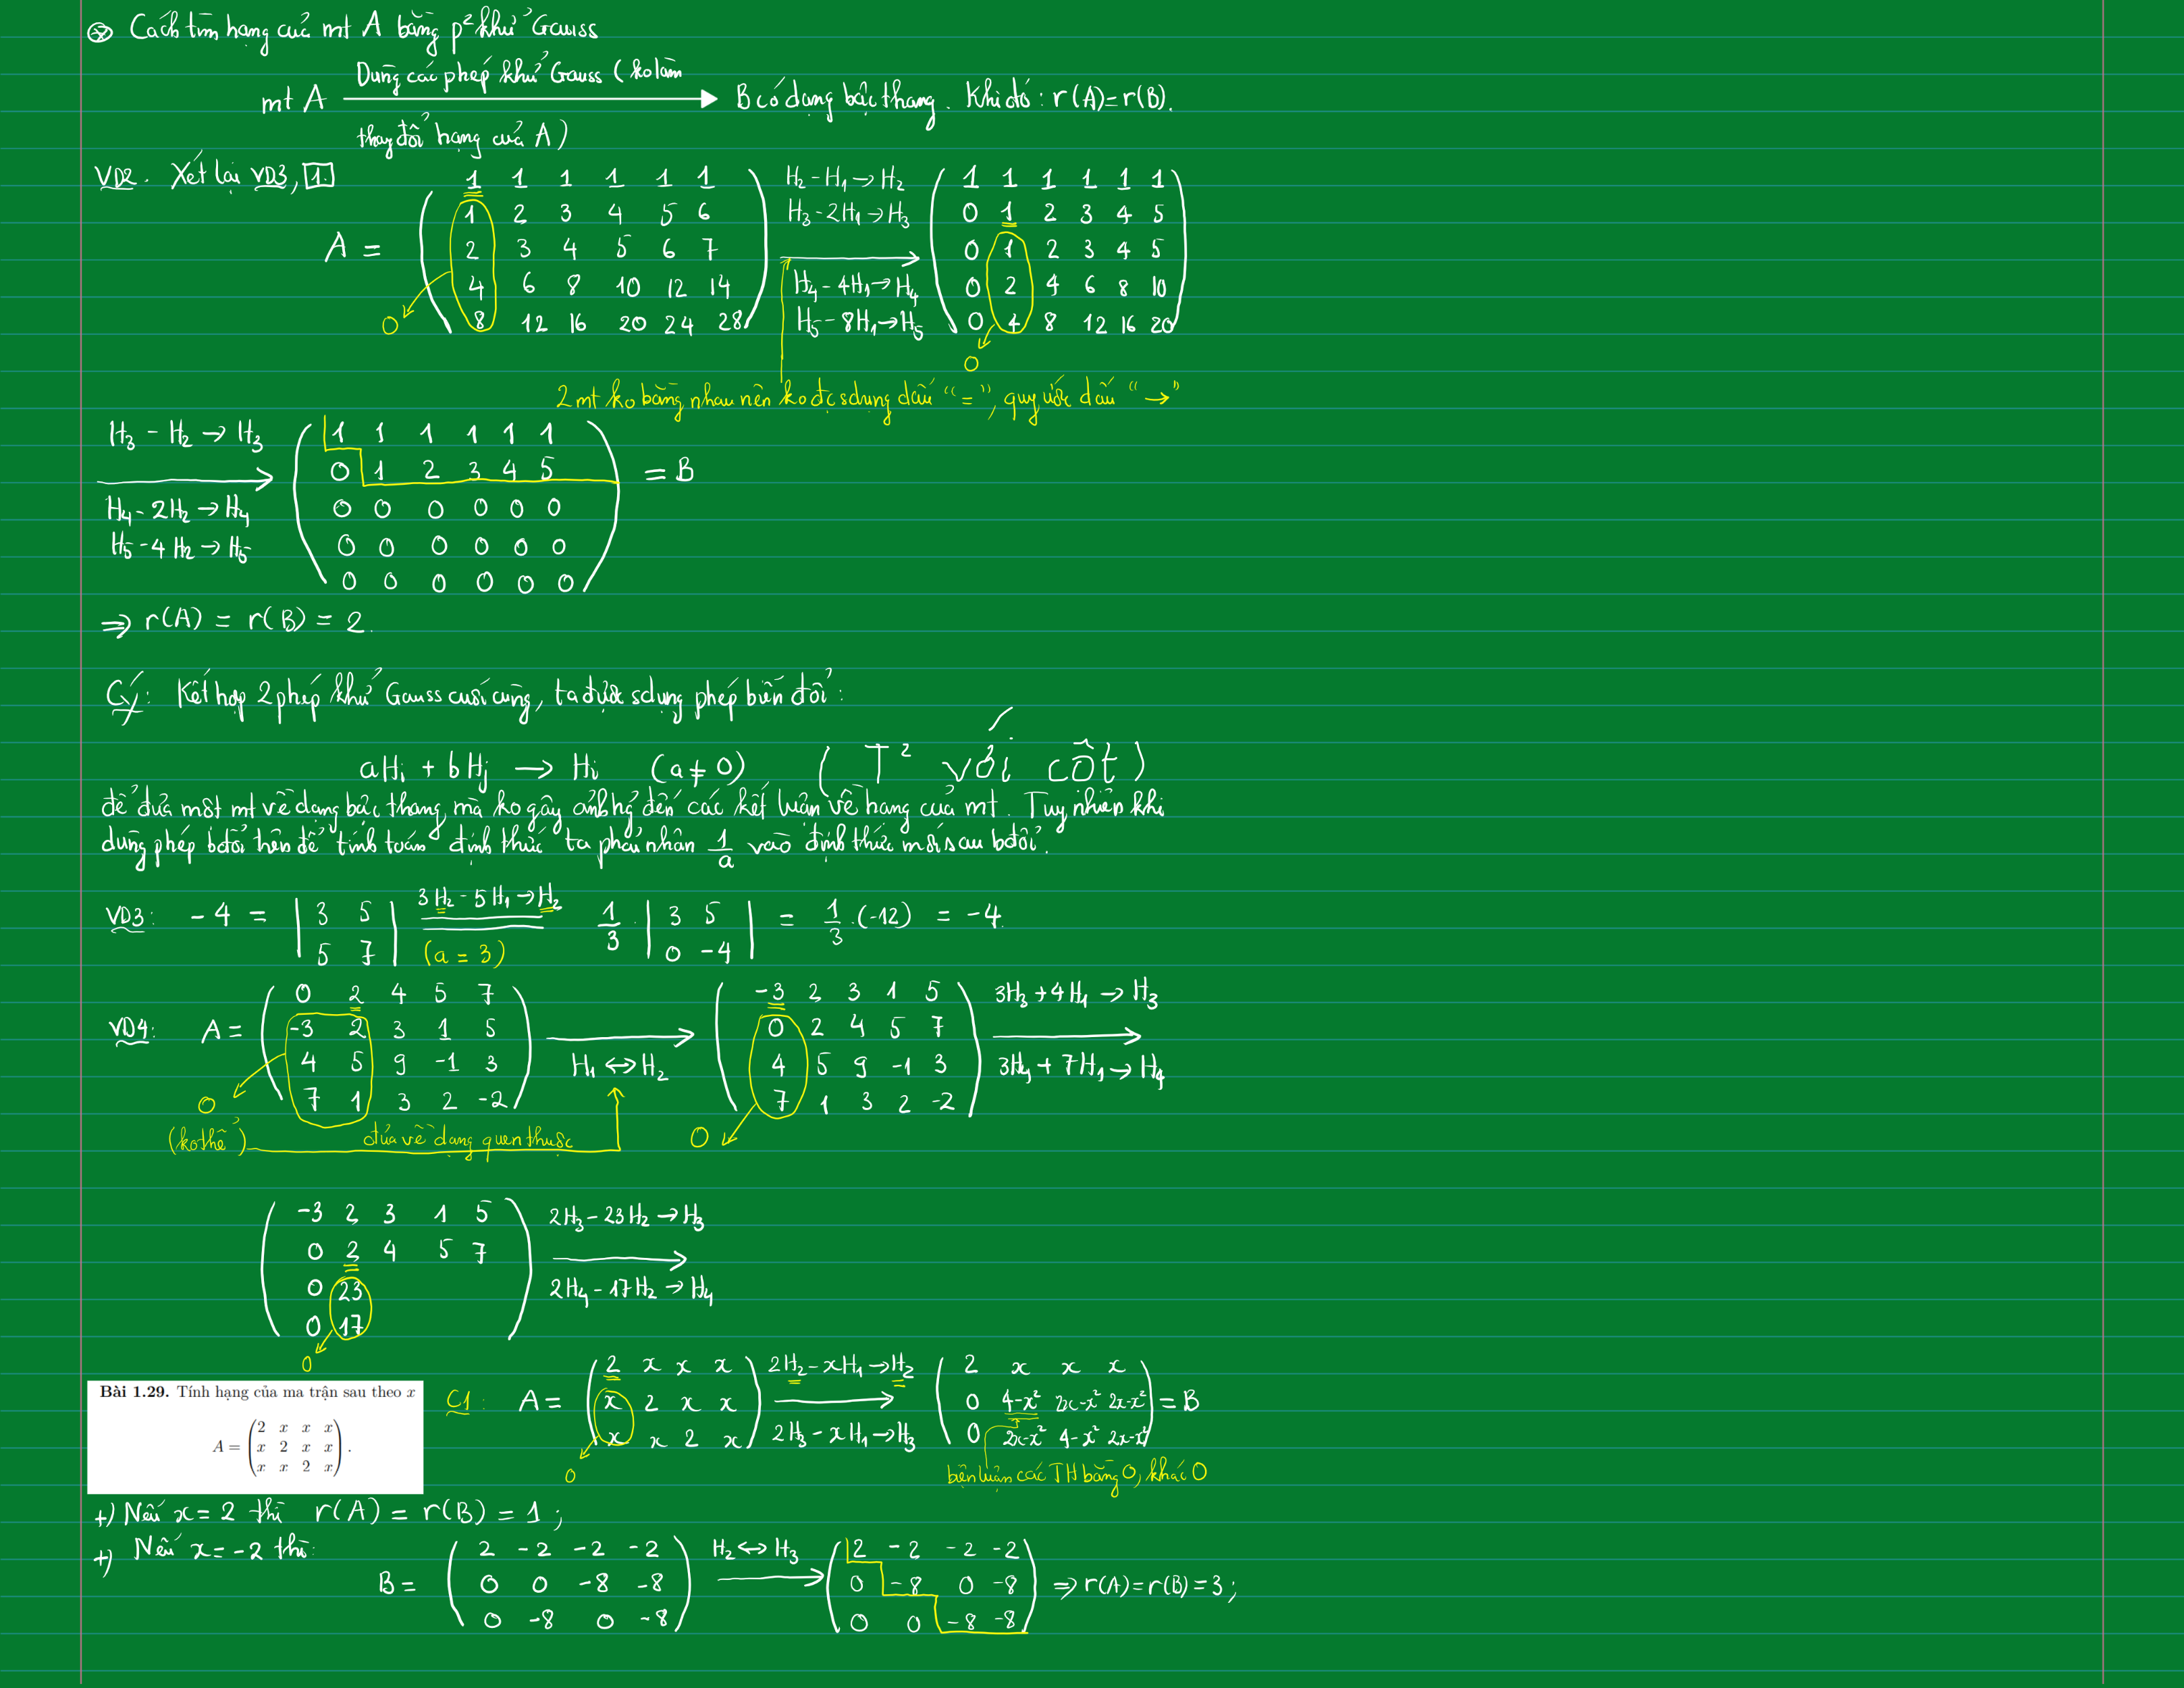 ⊛ Cách tìm hạng của mt A bằng p² khử Gauss
mt A Dùng các phép khử Gauss (ko làm thay đổi hạng của A) → B có dạng bậc thang. Khi đó: r(A)=r(B).
VD2. Xét lại VD3, 1.
A =
1 1 1 1 1 1
1 2 3 4 5 6
2 3 4 5 6 7
4 6 8 10 12 14
8 12 16 20 24 28
0
H₂-H₁→H₂
H₃-2H₁→H₃
H₄-4H₁→H₄
H₅-8H₁→H₅
1 1 1 1 1 1
0 1 2 3 4 5
0 1 2 3 4 5
0 2 4 6 8 10
0 4 8 12 16 20
0
2 mt ko bằng nhau nên ko đc sdụng dấu "=", quy ước dấu "→"
H₃-H₂→H₃
H₄-2H₂→H₄
H₅-4H₂→H₅
1 1 1 1 1 1
0 1 2 3 4 5
0 0 0 0 0 0
0 0 0 0 0 0
0 0 0 0 0 0
= B
⇒ r(A) = r(B) = 2.
CY: Kết hợp 2 phép khử Gauss cuối cùng, ta được sdụng phép biến đổi:
aHᵢ + bHⱼ → Hᵢ (a≠0) (T² với cột)
để đưa một mt về dạng bậc thang mà ko gây ảnh hg đến các kết luận về hạng của mt. Tuy nhiên khi
dùng phép bđổi trên để tính toán định thức ta phải nhân 1/a vào định thức mới sau bđổi.
VD3: -4 =
3 5
5 7
3H₂-5H₁→H₂
(a = 3)
1/3 .
3 5
0 -4
= 1/3.(-12) = -4.
VD4: A =
0 2 4 5 7
-3 2 3 1 5
4 5 9 -1 3
7 1 3 2 -2
0
(ko thể)
đưa về dạng quen thuộc
H₁↔H₂
-3 2 3 1 5
0 2 4 5 7
4 5 9 -1 3
7 1 3 2 -2
0
3H₃+4H₁→H₃
3H₄+7H₁→H₄
-3 2 3 1 5
0 2 4 5 7
0 23
0 17
0
2H₃-23H₂→H₃
2H₄-17H₂→H₄
Bài 1.29. Tính hạng của ma trận sau theo x
A =
2 x x x
x 2 x x
x x 2 x
.
C1: A =
2 x x x
x 2 x x
x x 2 x
0
2H₂-xH₁→H₂
2H₃-xH₁→H₃
2 x x x
0 4-x² 2x-x² 2x-x²
0 2x-x² 4-x² 2x-x²
= B
biện luận các TH bằng 0, khác 0
+) Nếu x=2 thì r(A) = r(B) = 1;
+) Nếu x=-2 thì:
B =
2 -2 -2 -2
0 0 -8 -8
0 -8 0 -8
H₂↔H₃
2 -2 -2 -2
0 -8 0 -8
0 0 -8 -8
⇒ r(A)=r(B)=3;